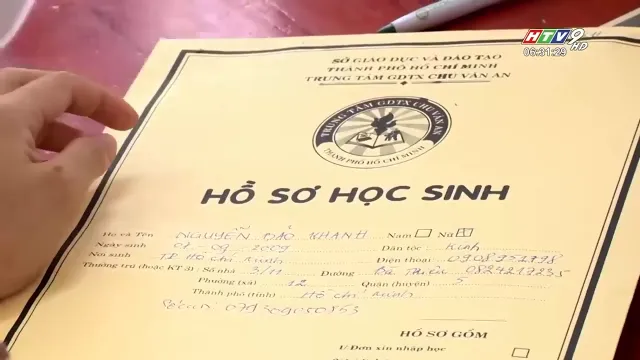 HTV9 HD
06:31:29
SỞ GIÁO DỤC VÀ ĐÀO TẠO
THÀNH PHỐ HỒ CHÍ MINH
TRUNG TÂM GDTX CHU VĂN AN
TRUNG TÂM GDTX CHU VĂN AN
THÀNH PHỐ HỒ CHÍ MINH
HỒ SƠ HỌC SINH
Họ và Tên NGUYỄN BẢO KHANH Nam Nữ
Ngày sinh 07-09-2009 Dân tộc: Kinh
Nơi sinh TP Hồ Chí Minh Điện thoại: 0908951798
Thường trú (hoặc KT 3) : Số nhà 3/11 Đường Bà Triệu 0824217235
Phường (xã) 12 Quận (huyện) 5
Thành phố (tỉnh) Hồ Chí Minh
HỒ SƠ GỒM
1/ Đơn xin nhập học